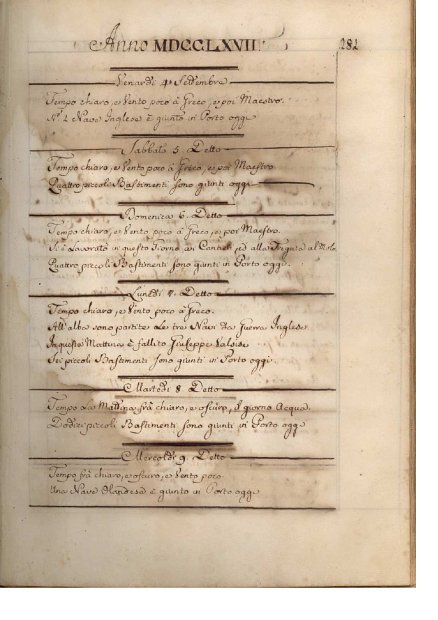 Anno MDCCLXVII. 281
Venardi 4. Settembre
Tempo chiaro, e Vento poco à Greco, e poi Maestro.
N.º 1. Nave Inglese è giunta in Porto oggi
Sabbato 5. Detto
Tempo chiaro, e Vento poco à Greco, e poi Maestro
Quattro piccoli Bastimenti sono giunti oggi
Domenica 6. Detto
Tempo chiaro, e Vento poco à Greco, e poi Maestro.
Si è Lavorato in questo Giorno ai Cantieri ed alla Fregata al Molo
Quattro piccoli Bastimenti sono giunti in Porto oggi.
Lunedi 7. Detto
Tempo chiaro, e Vento poco à Greco.
All'alba sono partite Le tre Navi da Guerra Inglesi
In questa Mattina è fallito Giuseppe
Sei piccoli Bastimenti sono giunti in Porto oggi.
Martedi 8. Detto
Tempo La Mattina frà chiaro, e oscuro, il giorno Acqua.
Dodici piccoli Bastimenti sono giunti in Porto oggi
Mercoldi 9. Detto
Tempo frà chiaro, e oscuro, e Vento poco
Una Nave Olandese è giunta in Porto oggi